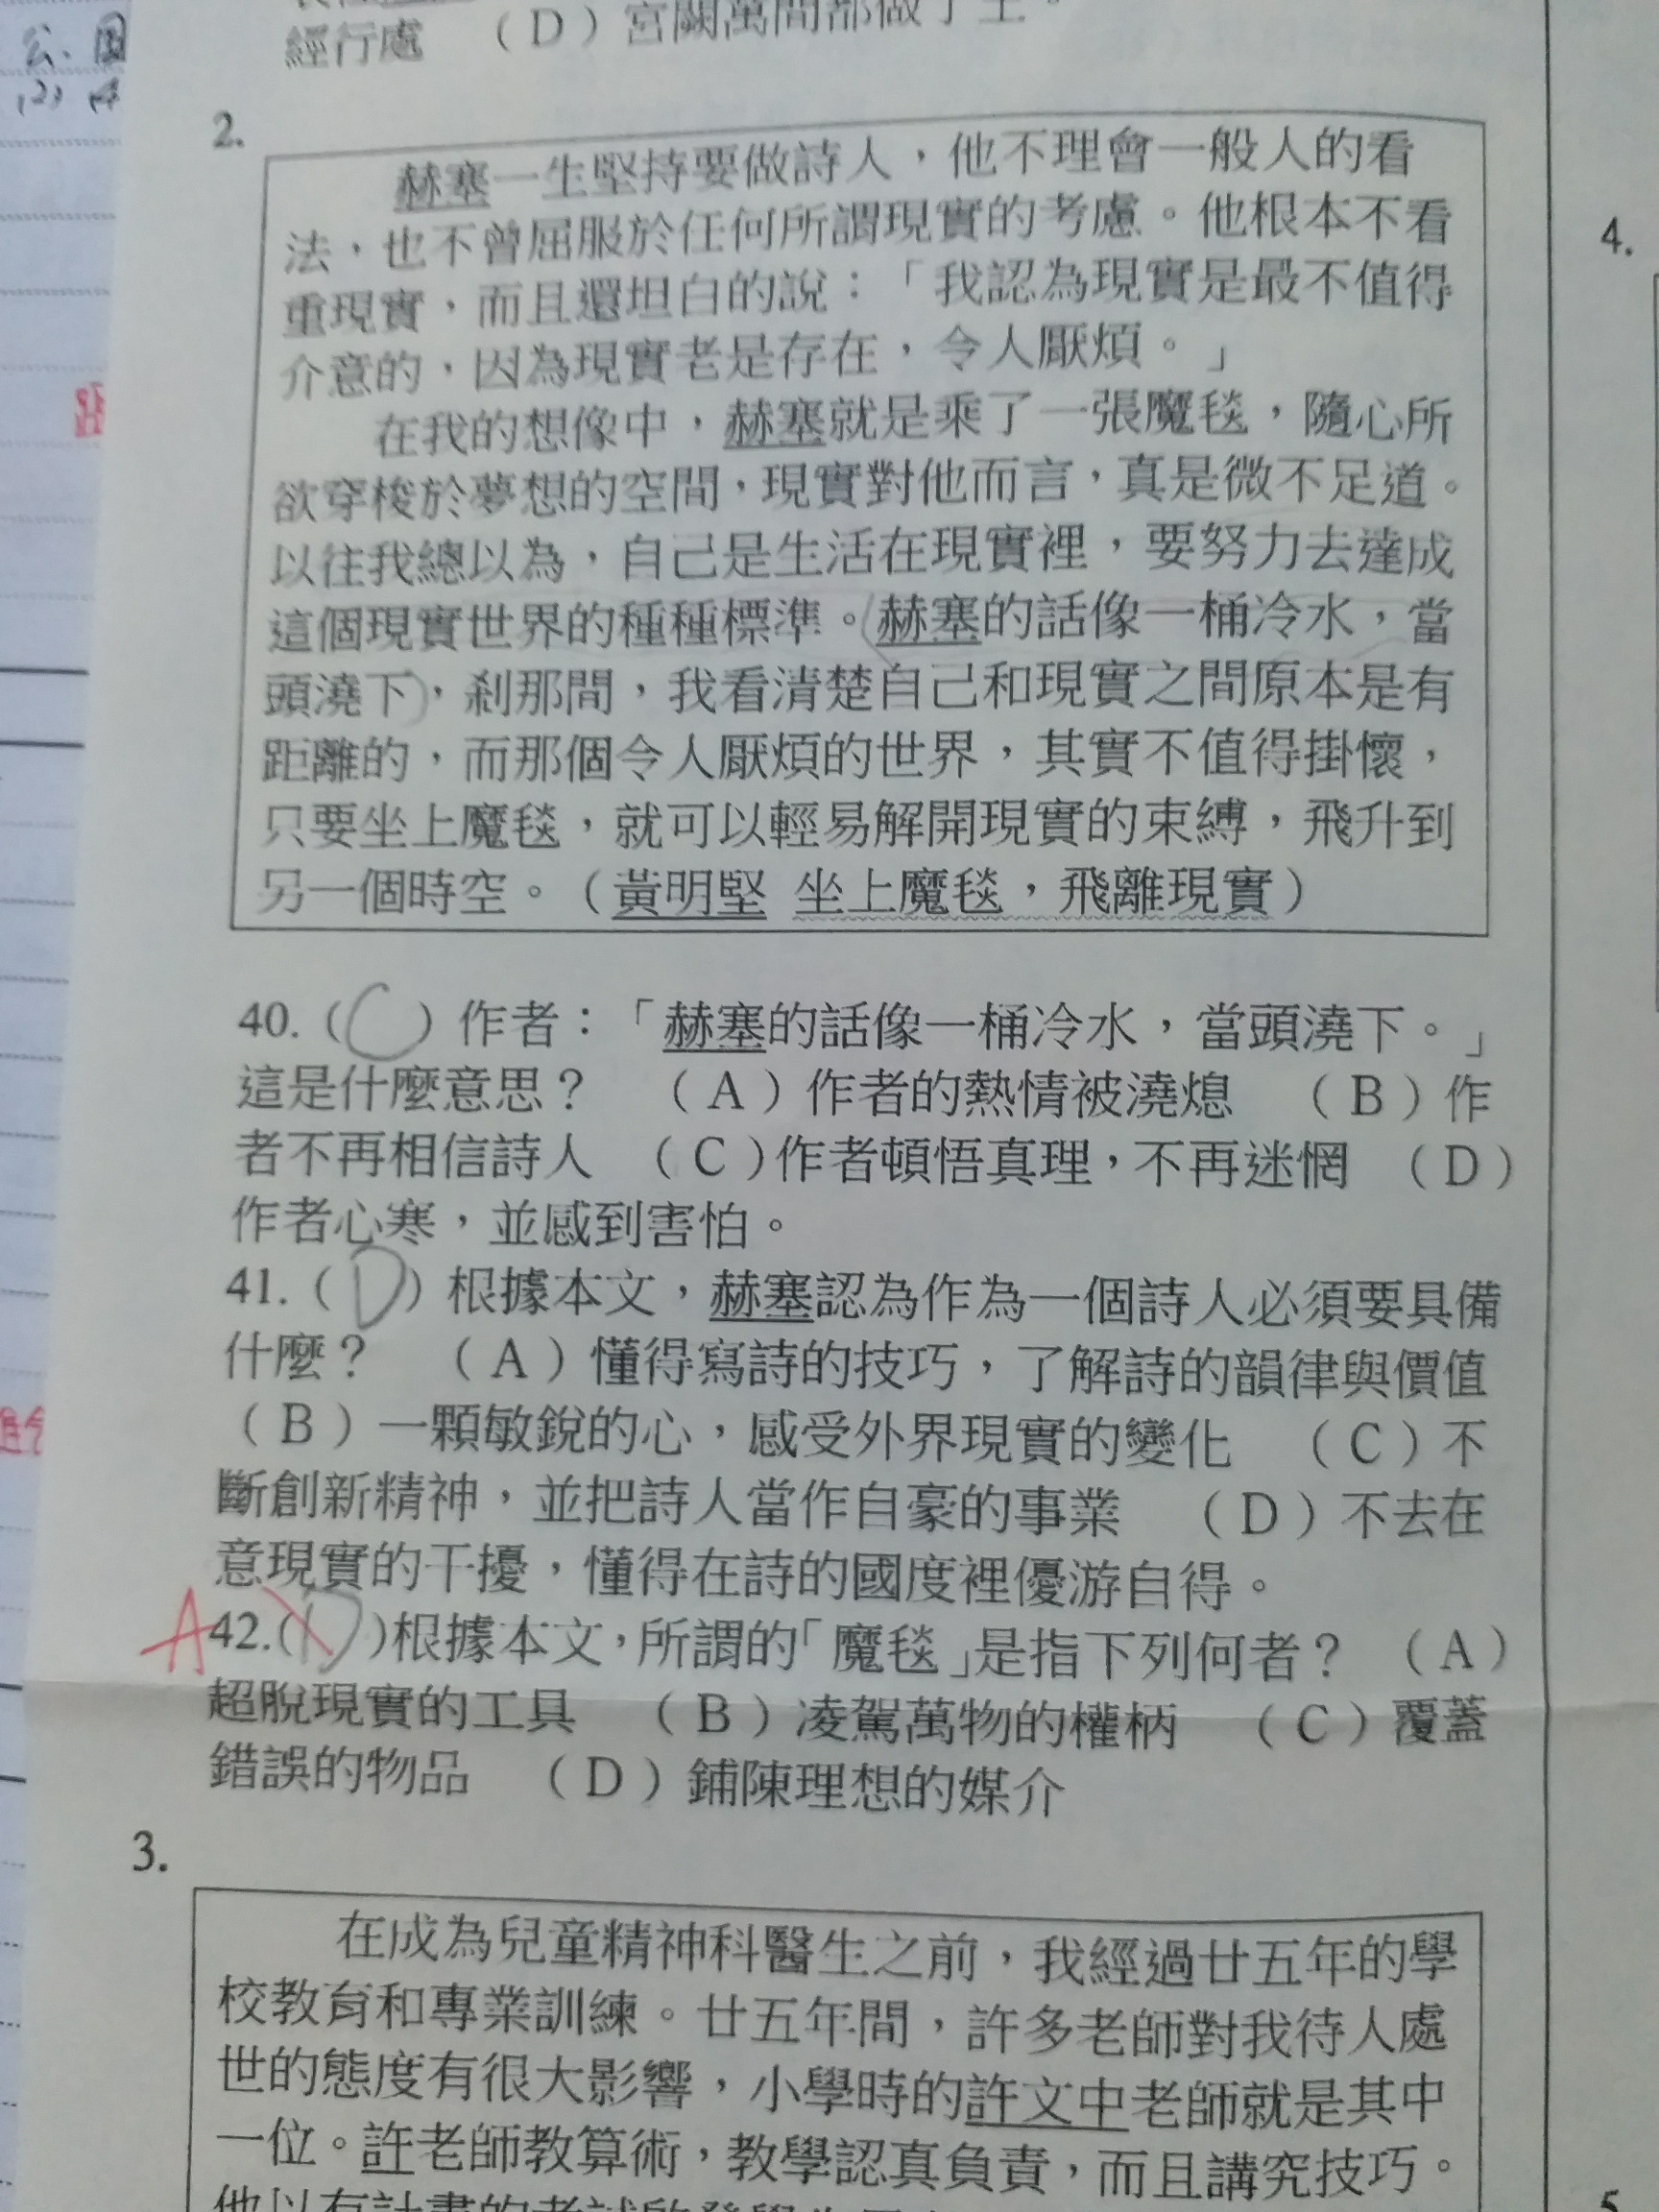 經行處 (D)宮闕萬間都做了土。
2.
赫塞一生堅持要做詩人，他不理會一般人的看
法，也不曾屈服於任何所謂現實的考慮。他根本不看
重現實，而且還坦白的說：「我認為現實是最不值得
介意的，因為現實老是存在，令人厭煩。」
在我的想像中，赫塞就是乘了一張魔毯，隨心所
欲穿梭於夢想的空間，現實對他而言，真是微不足道。
以往我總以為，自己是生活在現實裡，要努力去達成
這個現實世界的種種標準。赫塞的話像一桶冷水，當
頭澆下，剎那間，我看清楚自己和現實之間原本是有
距離的，而那個令人厭煩的世界，其實不值得掛懷，
只要坐上魔毯，就可以輕易解開現實的束縛，飛升到
另一個時空。(黃明堅 坐上魔毯，飛離現實)
40.(C)作者：「赫塞的話像一桶冷水，當頭澆下。」
這是什麼意思？ (A)作者的熱情被澆熄 (B)作
者不再相信詩人 (C)作者頓悟真理，不再迷惘 (D)
作者心寒，並感到害怕。
41.(D)根據本文，赫塞認為作為一個詩人必須要具備
什麼？ (A)懂得寫詩的技巧，了解詩的韻律與價值
(B)一顆敏銳的心，感受外界現實的變化 (C)不
斷創新精神，並把詩人當作自豪的事業 (D)不去在
意現實的干擾，懂得在詩的國度裡優游自得。
A 42.(D)根據本文，所謂的「魔毯」是指下列何者？ (A)
超脫現實的工具 (B)凌駕萬物的權柄 (C)覆蓋
錯誤的物品 (D)鋪陳理想的媒介
3.
在成為兒童精神科醫生之前，我經過廿五年的學
校教育和專業訓練。廿五年間，許多老師對我待人處
世的態度有很大影響，小學時的許文中老師就是其中
一位。許老師教算術，教學認真負責，而且講究技巧。
4.
5